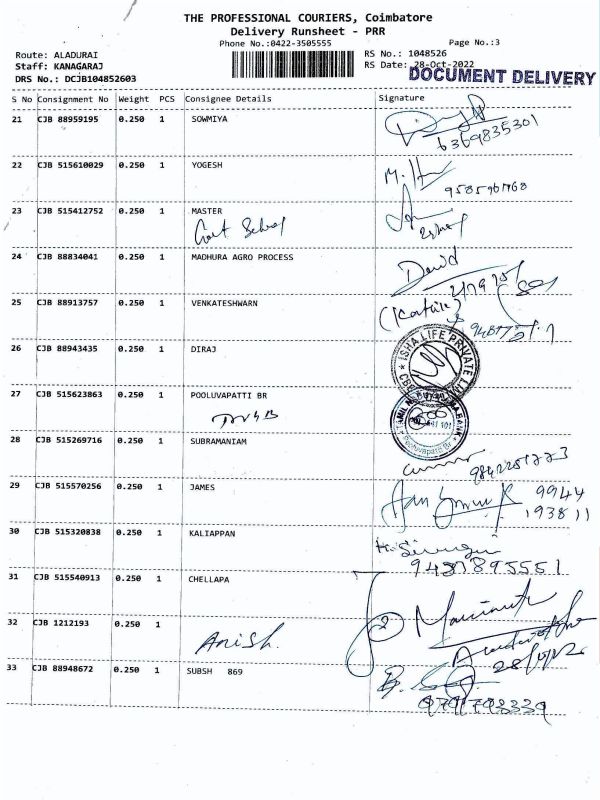 THE PROFESSIONAL COURIERS, Coimbatore
Delivery Runsheet - PRR
Phone No.:0422-3505555
Page No.:3
Route: ALADURAI
RS No.: 1048526
Staff: KANAGARAJ
RS Date: 28-Oct-2022
DRS No.: DCJB104852603
DOCUMENT DELIVERY
S No Consignment No Weight PCS Consignee Details Signature
21 CJB 88959195 0.250 1 SOWMIYA
6369835301
22 CJB 515610029 0.250 1 YOGESH
23 CJB 515412752 0.250 1 MASTER
Govt School
24 CJB 88834041 0.250 1 MADHURA AGRO PROCESS
David
25 CJB 88913757 0.250 1 VENKATESHWARN
26 CJB 88943435 0.250 1 DIRAJ
ISHA LIFE PRIVATE
27 CJB 515623863 0.250 1 POOLUVAPATTI BR
TNGB
28 CJB 515269716 0.250 1 SUBRAMANIAM
29 CJB 515570256 0.250 1 JAMES
9944
193811
30 CJB 515320838 0.250 1 KALIAPPAN
31 CJB 515540913 0.250 1 CHELLAPA
32 CJB 1212193 0.250 1
Anish.
33 CJB 88948672 0.250 1 SUBSH 869